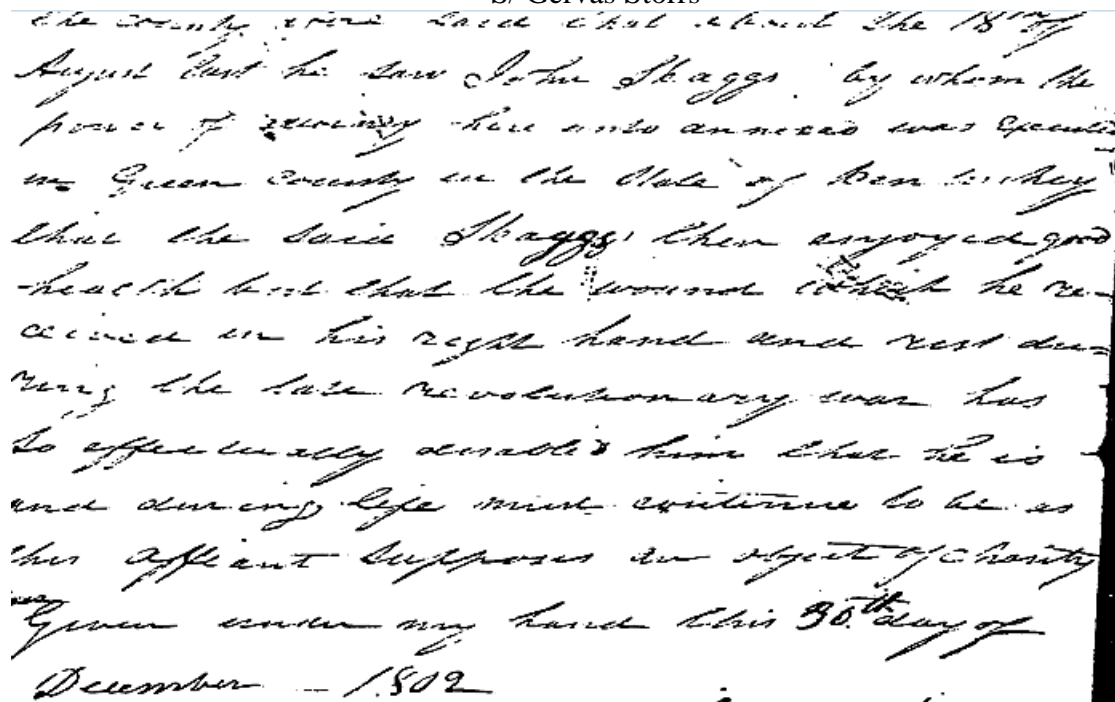 S/ Gervas Storrs
the county said that about the 18th of
August last he saw John Skaggs by whom the
power of here unto annexed was Executed
in Green county in the State of Kentuckey
that the said Skaggs then enjoyed good
health but that the wound which he re-
ceived in his right hand and rist du=
ring the late revolutionary war has
so effectually disabled him that he is
and during life must continue to be as
this affiant supposes an object of charity
Given under my hand this 30th day of
December - 1802